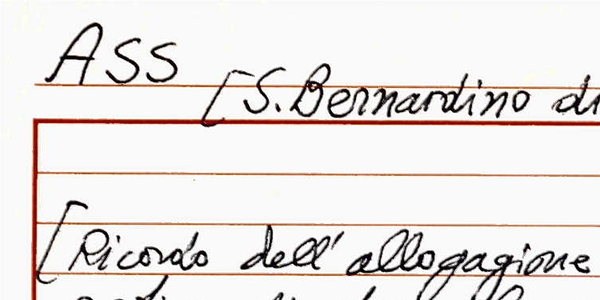 ASS
[S. Bernardino
[Ricordo dell' allogagione